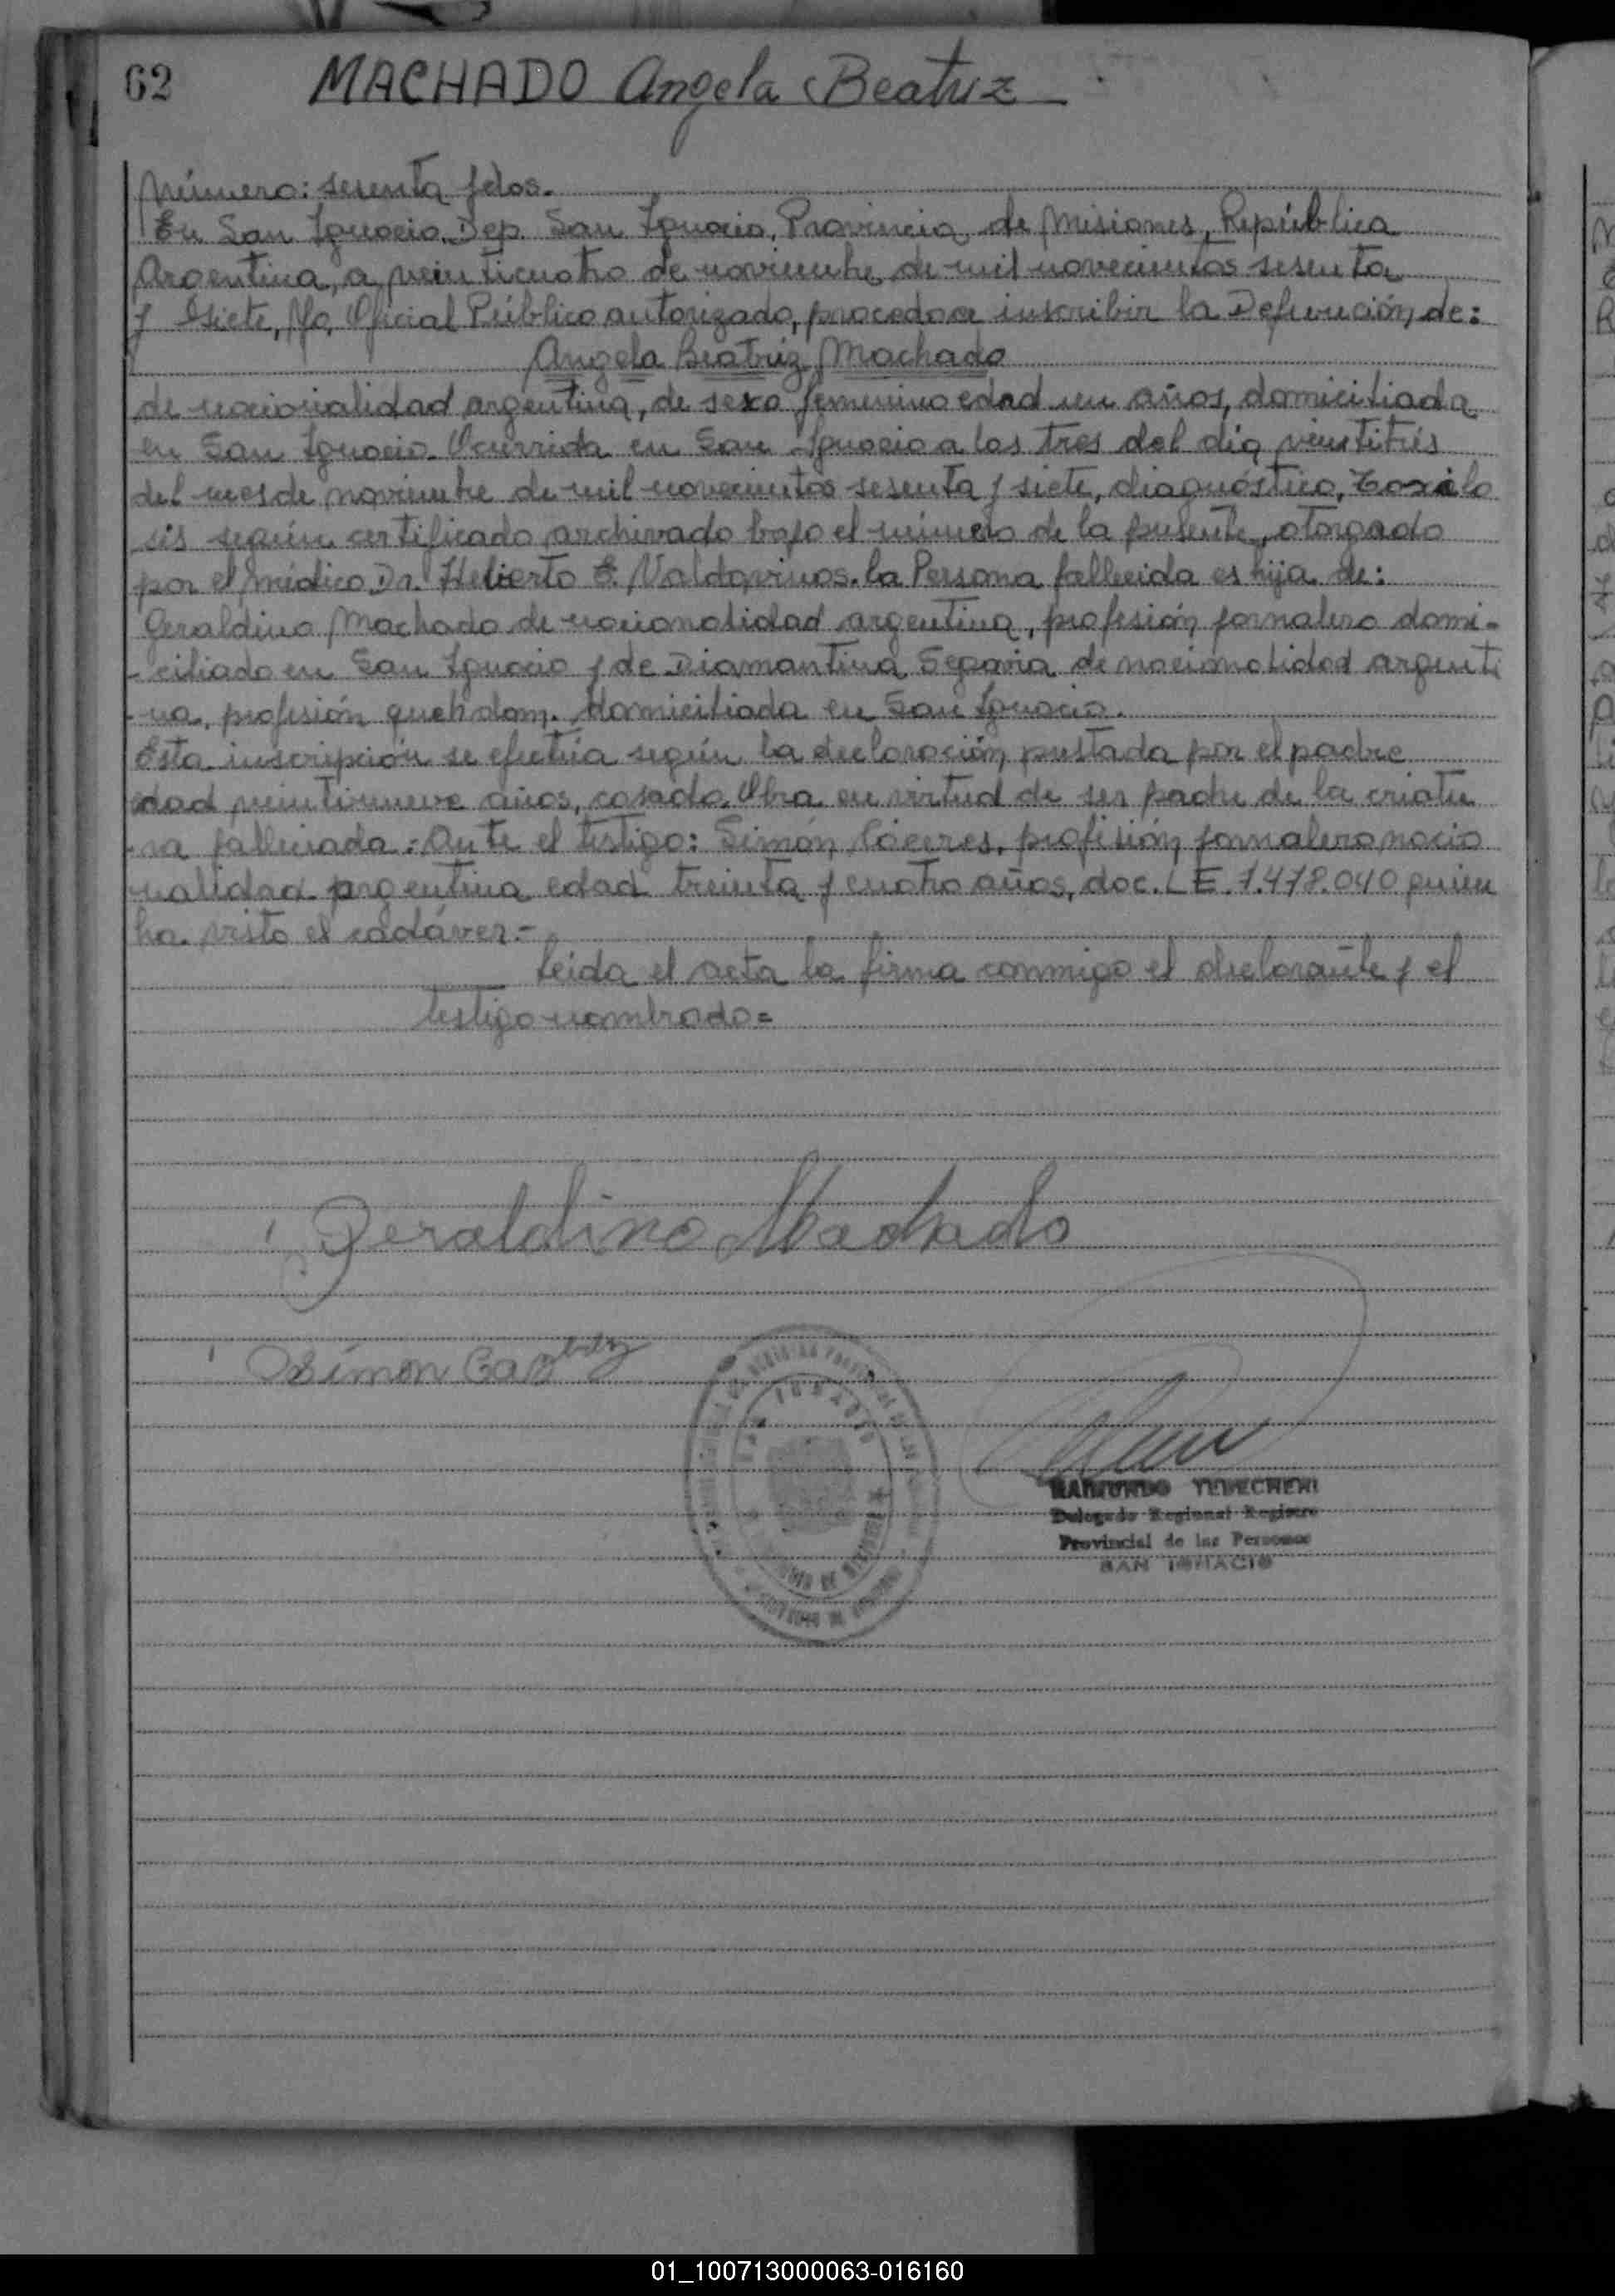 62
MACHADO Angela Beatriz
Número: sesenta y dos.
En San Ignacio. Dep. San Ignacio, Provincia de Misiones, República
Argentina, a veinticuatro de noviembre de mil novecientos sesenta
y siete, Yo, Oficial Público autorizado, procedo a inscribir la Defunción de:
Angela Beatriz Machado
de nacionalidad argentina, de sexo femenino edad un años, domiciliada
en San Ignacio. Ocurrida en San Ignacio a las tres del día veintitrés
del mes de noviembre de mil novecientos sesenta y siete, diagnóstico,
sis según certificado archivado bajo el número de la presente, otorgado
por el médico Dr. Helierto E. Valdovinos. la Persona fallecida es hija de:
Geraldino Machado de nacionalidad argentina, profesión jornalero domi-
-ciliado en San Ignacio y de Diamantina Segovia de nacionalidad argenti
-na, profesión queh dom. domiciliada en San Ignacio.
Esta inscripción se efectúa según la declaración prestada por el padre
edad veintinueve años, casado. Obra en virtud de ser padre de la criatu
-ra fallecida: Ante el testigo: Simón Cáceres, profisión jornalero nacio
nalidad argentina edad treinta y cuatro años, doc. L E. 7.478.040 quien
ha visto el cadáver.-
leída el acta la firma conmigo el declarante y el
testigo nombrado=
Geraldino Machado
Simon
SAN IGNACIO
RAIMUNDO
Delegado Regional Registro
Provincial de las Personas
SAN IGNACIO
01_100713000063-016160